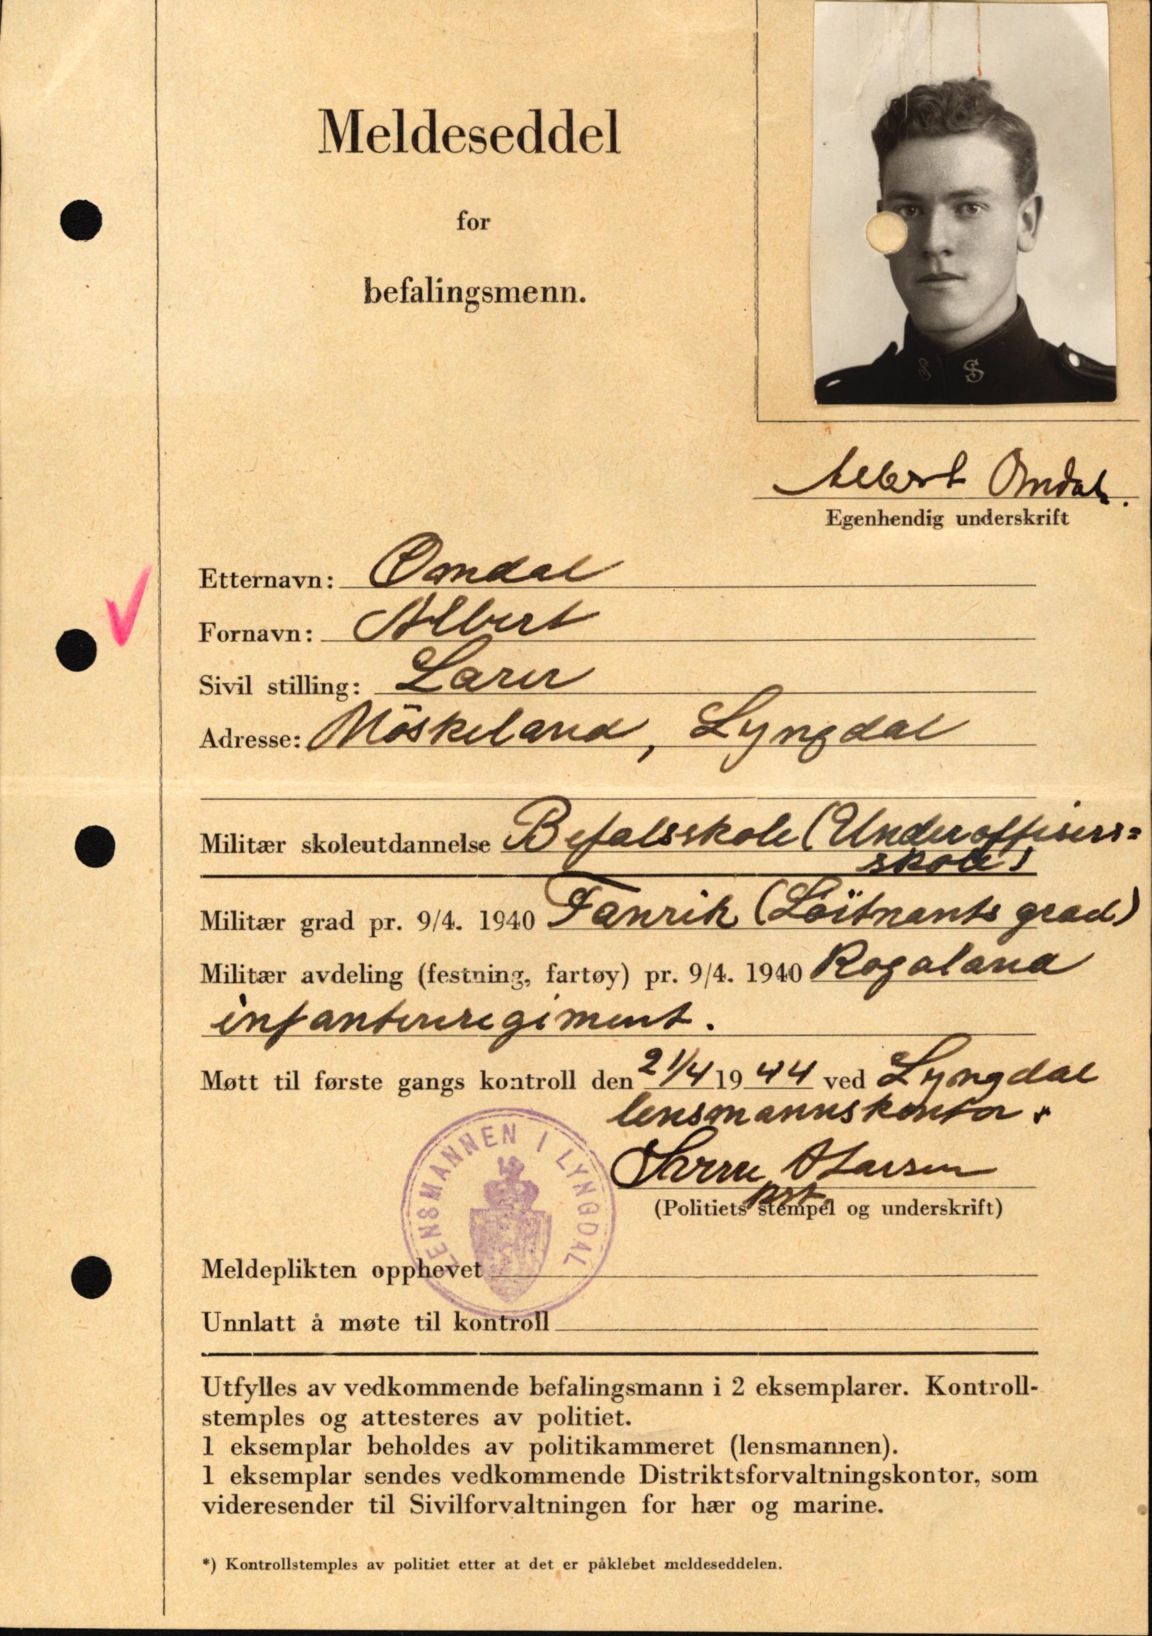 Meldeseddel
for
befalingsmenn.
S S
Albert Omdal.
Egenhendig underskrift
Etternavn: Omdal
Fornavn: Albert
Sivil stilling: Lærer
Adresse: Möskeland, Lyngdal
Militær skoleutdannelse Befalsskole (Underoffisers=
skole)
Militær grad pr. 9/4. 1940 Fanrik (Löitnants grad)
Militær avdeling (festning, fartøy) pr. 9/4. 1940 Rogaland
infanteriregiment.
Møtt til første gangs kontroll den 21/4 1944 ved Lyngdal
lensmannskontor.
Larsen
(Politiets stempel og underskrift)
LENSMANNEN I LYNGDAL
Meldeplikten opphevet
Unnlatt å møte til kontroll
Utfylles av vedkommende befalingsmann i 2 eksemplarer. Kontroll-
stemples og attesteres av politiet.
1 eksemplar beholdes av politikammeret (lensmannen).
1 eksemplar sendes vedkommende Distriktsforvaltningskontor, som
videresender til Sivilforvaltningen for hær og marine.
*) Kontrollstemples av politiet etter at det er påklebet meldeseddelen.